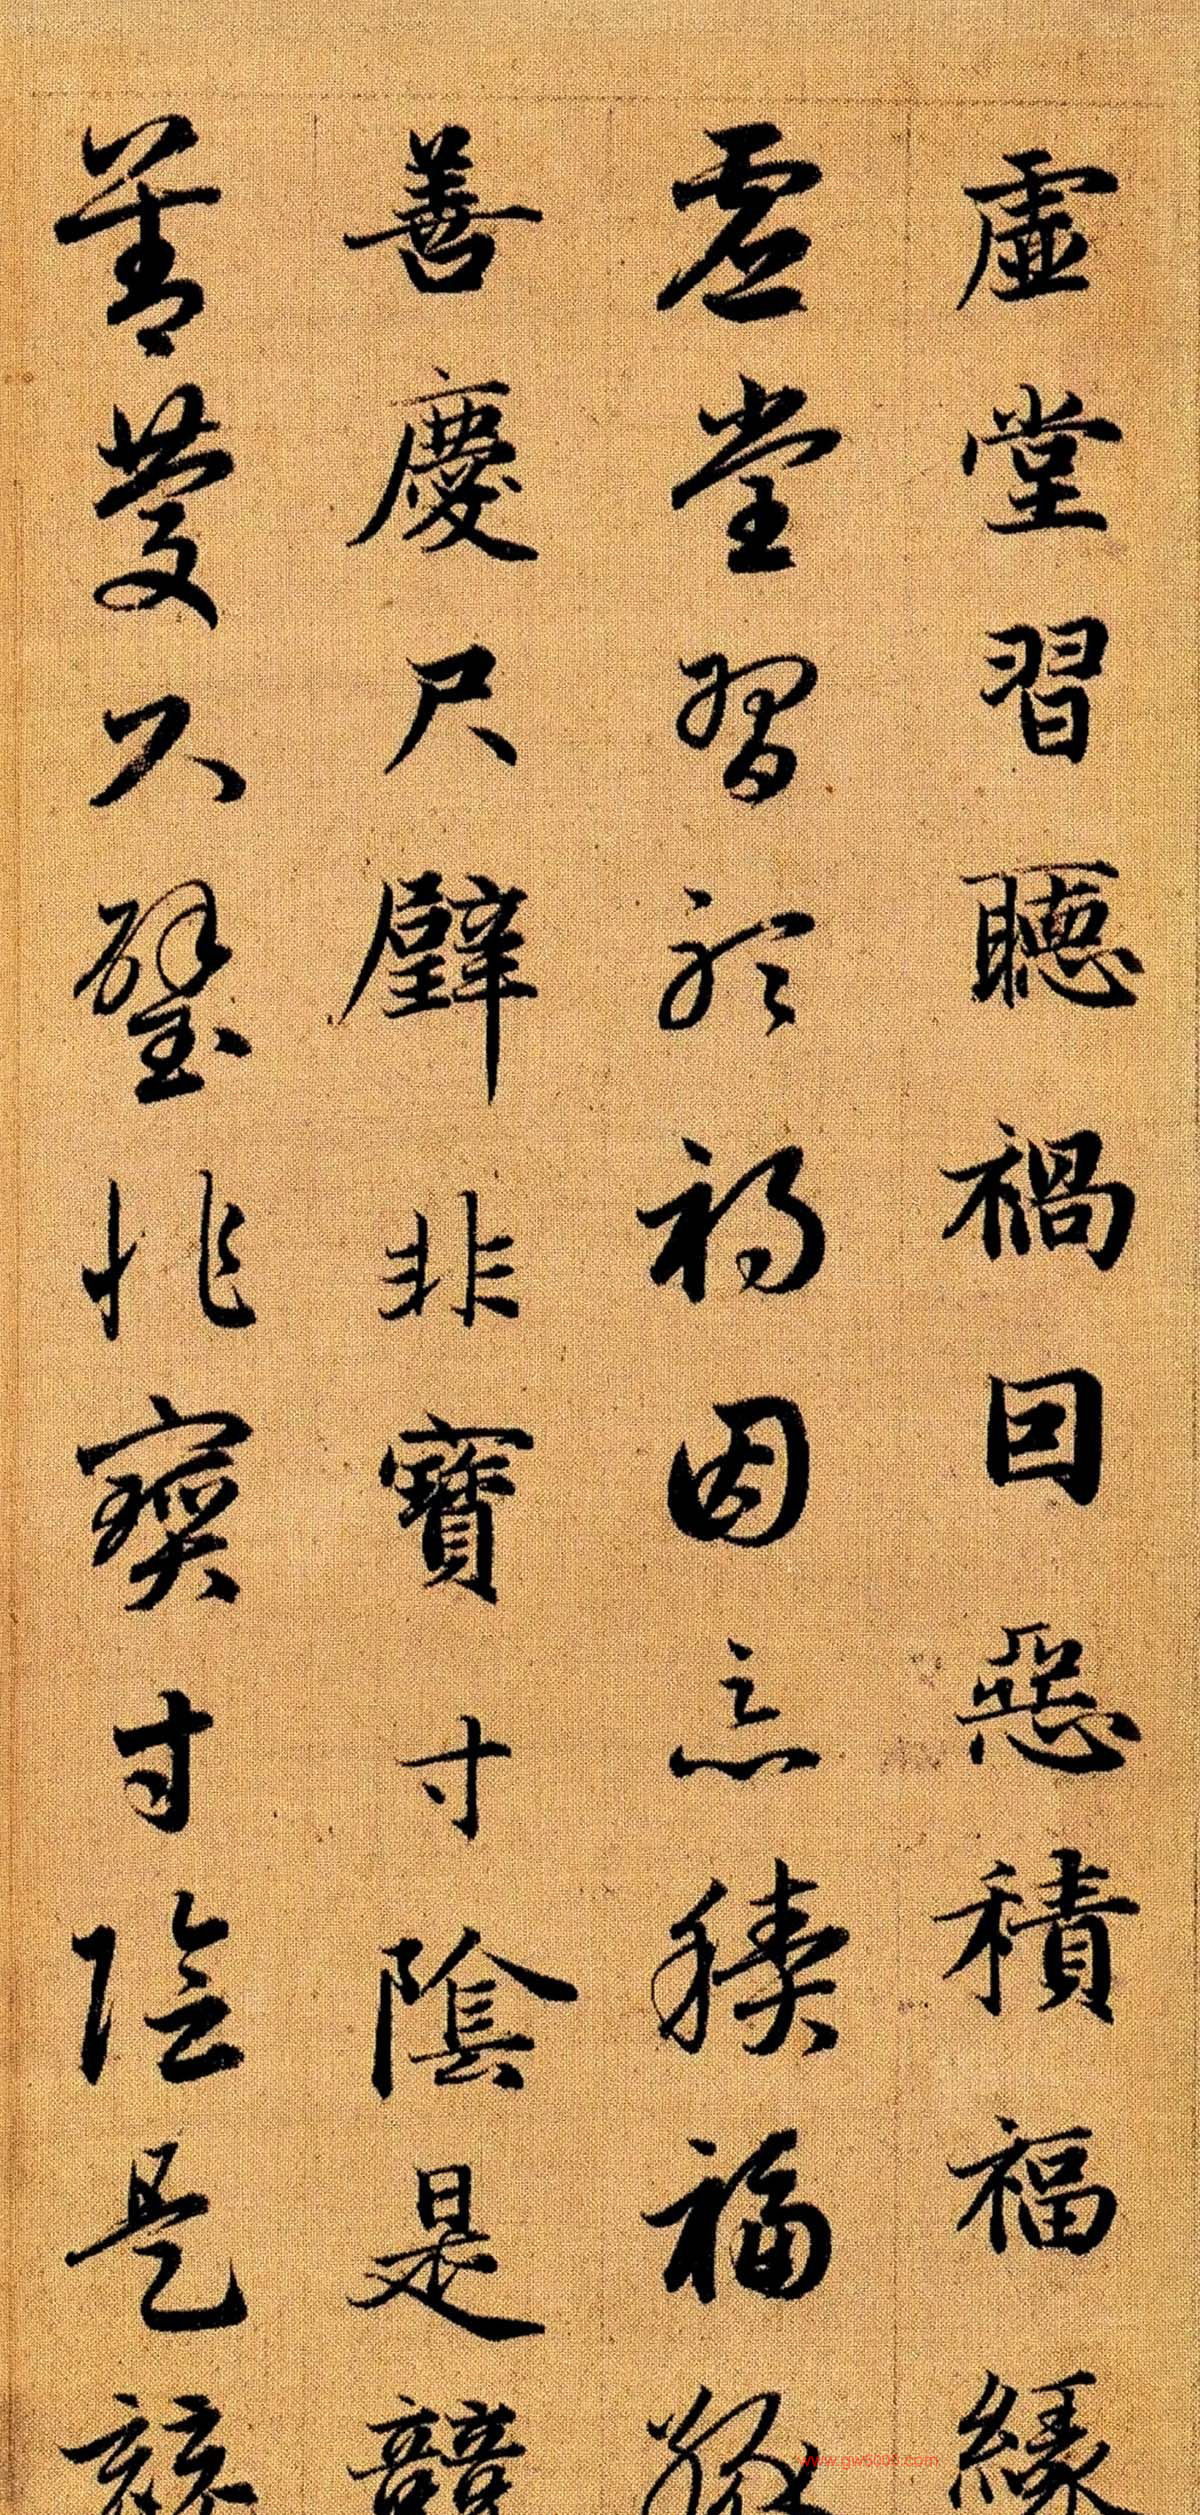 虛堂習聽禍因惡積福緣
虛堂習聽禍因惡積福緣
善慶尺璧非寶寸陰是競
善慶尺璧非寶寸陰是競